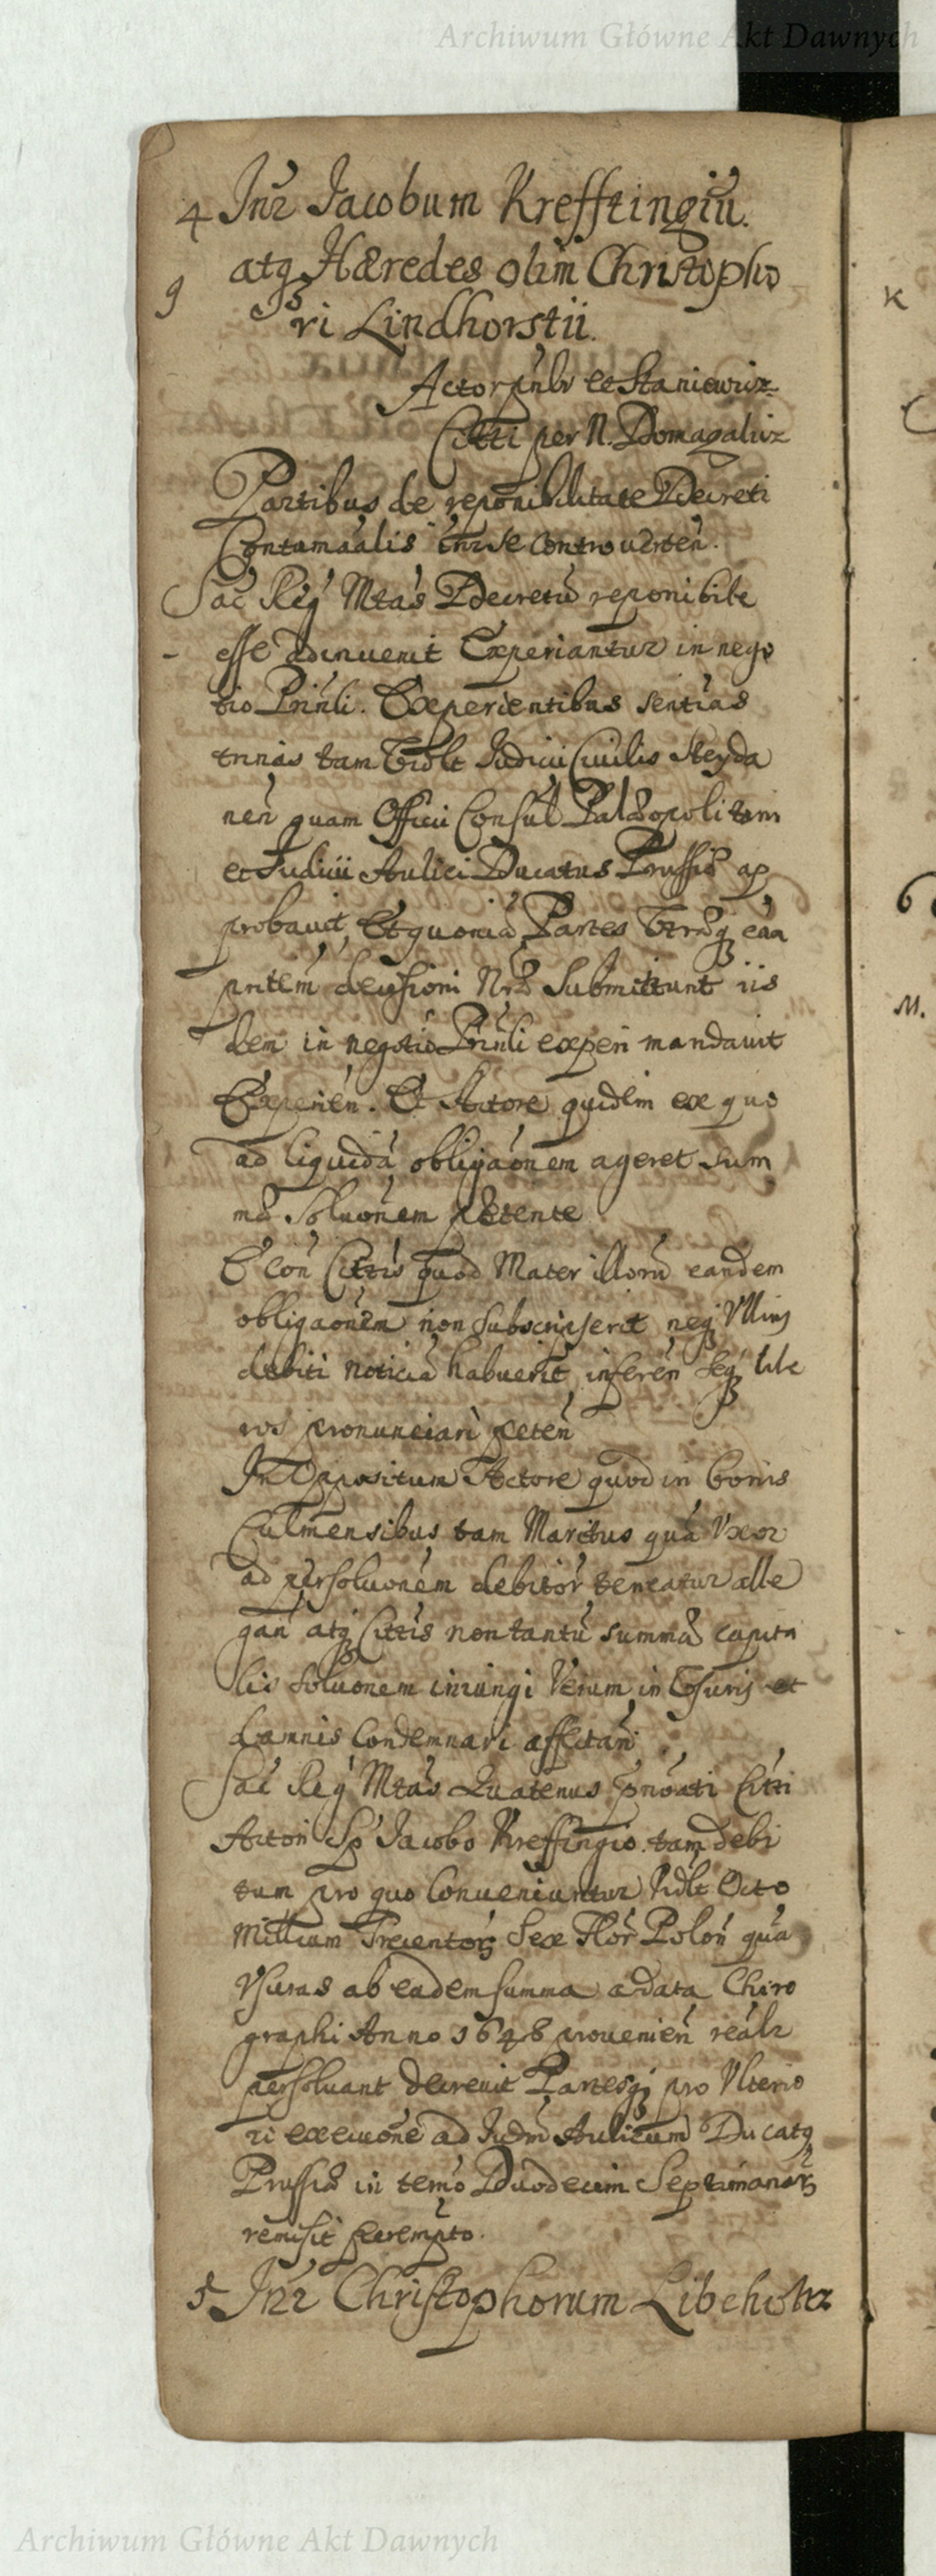 Archiwum Główne Akt Dawnych
4 Inr Jacobum Krefftingiu.
9 atq Hæredes olim Christopho
ri Lindhorstii.
Actor p et Staniewicz
Citti per N. Domagalicz
Partibus de reponibilitate Decreti
Contumatialis inr se controverten.
Sac Reg Mtas Decretu reponibile
- esse adinvenit Experiantur in nego
tio Prinli. Experientibus sentias
tam Judicii Civilis Heyda
nen quam Officii Consul Palæopolitani
et Judicii Aulici Ducatus Prussiæ ap
probavit, Et quonia Partes utræq eaa
pntem decisioni Nræ submittunt iis
dem in negotio Prinli experi mandavit
Experien. Et Actore quidem ex quo
ad liquida obligaonem ageret sum
mæ Soluonem petente
E con Cittis quod Mater illoru eandem
obligaonem non subscripserit neq Ullius
debiti noticia habuerit, inferen seq libe
ros pronunciari peten
In Oppositum Actore quod in bonis
Culmensibus tam Maritus qua Uxor
ad persoluonem debitor teneatur alle
gan atq Cittis non tantu summæ capita
lis soluonem iniungi Verum in Usuris et
damnis Condemnari affectan
Sac Reg Mtas Quatenus Citti
Actori Sp Jacobo Kreffingio tam debi
tum pro quo Conveniuntur Octo
Millium Trecentor Sex Flor Polon qua
Usuras ab eadem summa a data Chiro
graphi Anno 1648 provenien realr
persolvant decrevit Partesq pro Ulterio
ri exeuone ad Judm Aulicum Ducatq
Prussiæ in termo Duodecim Septimanar
remisit perempto.
5 Inr Christophorum Libeholtz
K
M.
Archiwum Główne Akt Dawnych